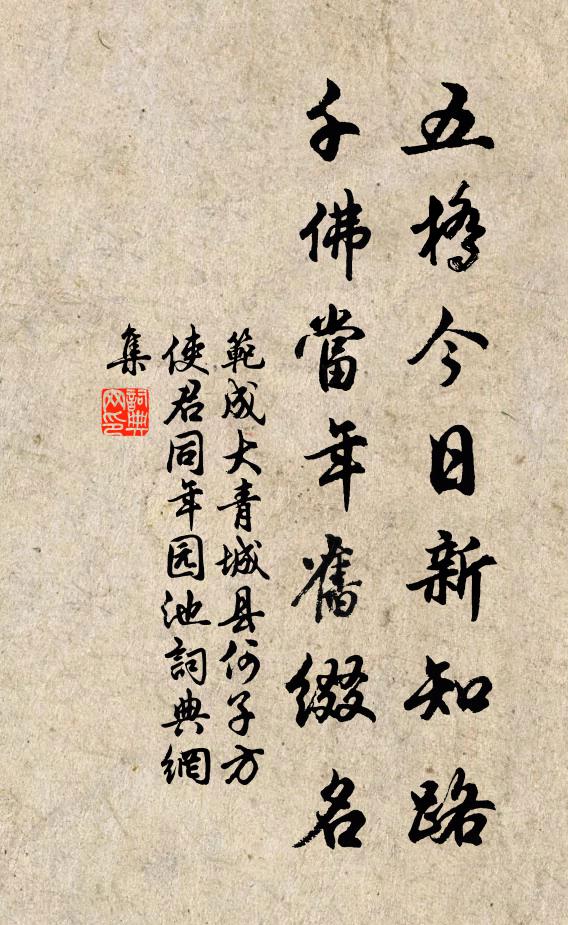 五橋今日新知路
千佛當年舊綴名
範成大青城县何子方
使君同年园池詞典網
集
詞典網印